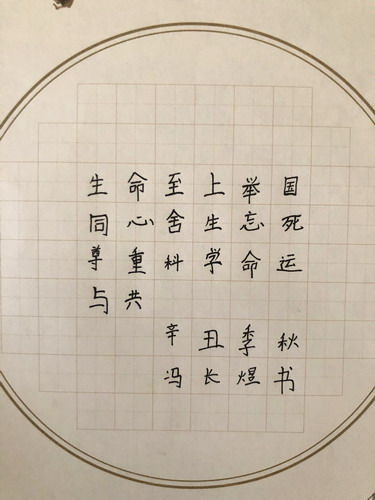 生命至上举国
同心舍生忘死
尊重科学命运
与共
辛丑季秋
冯长煜书